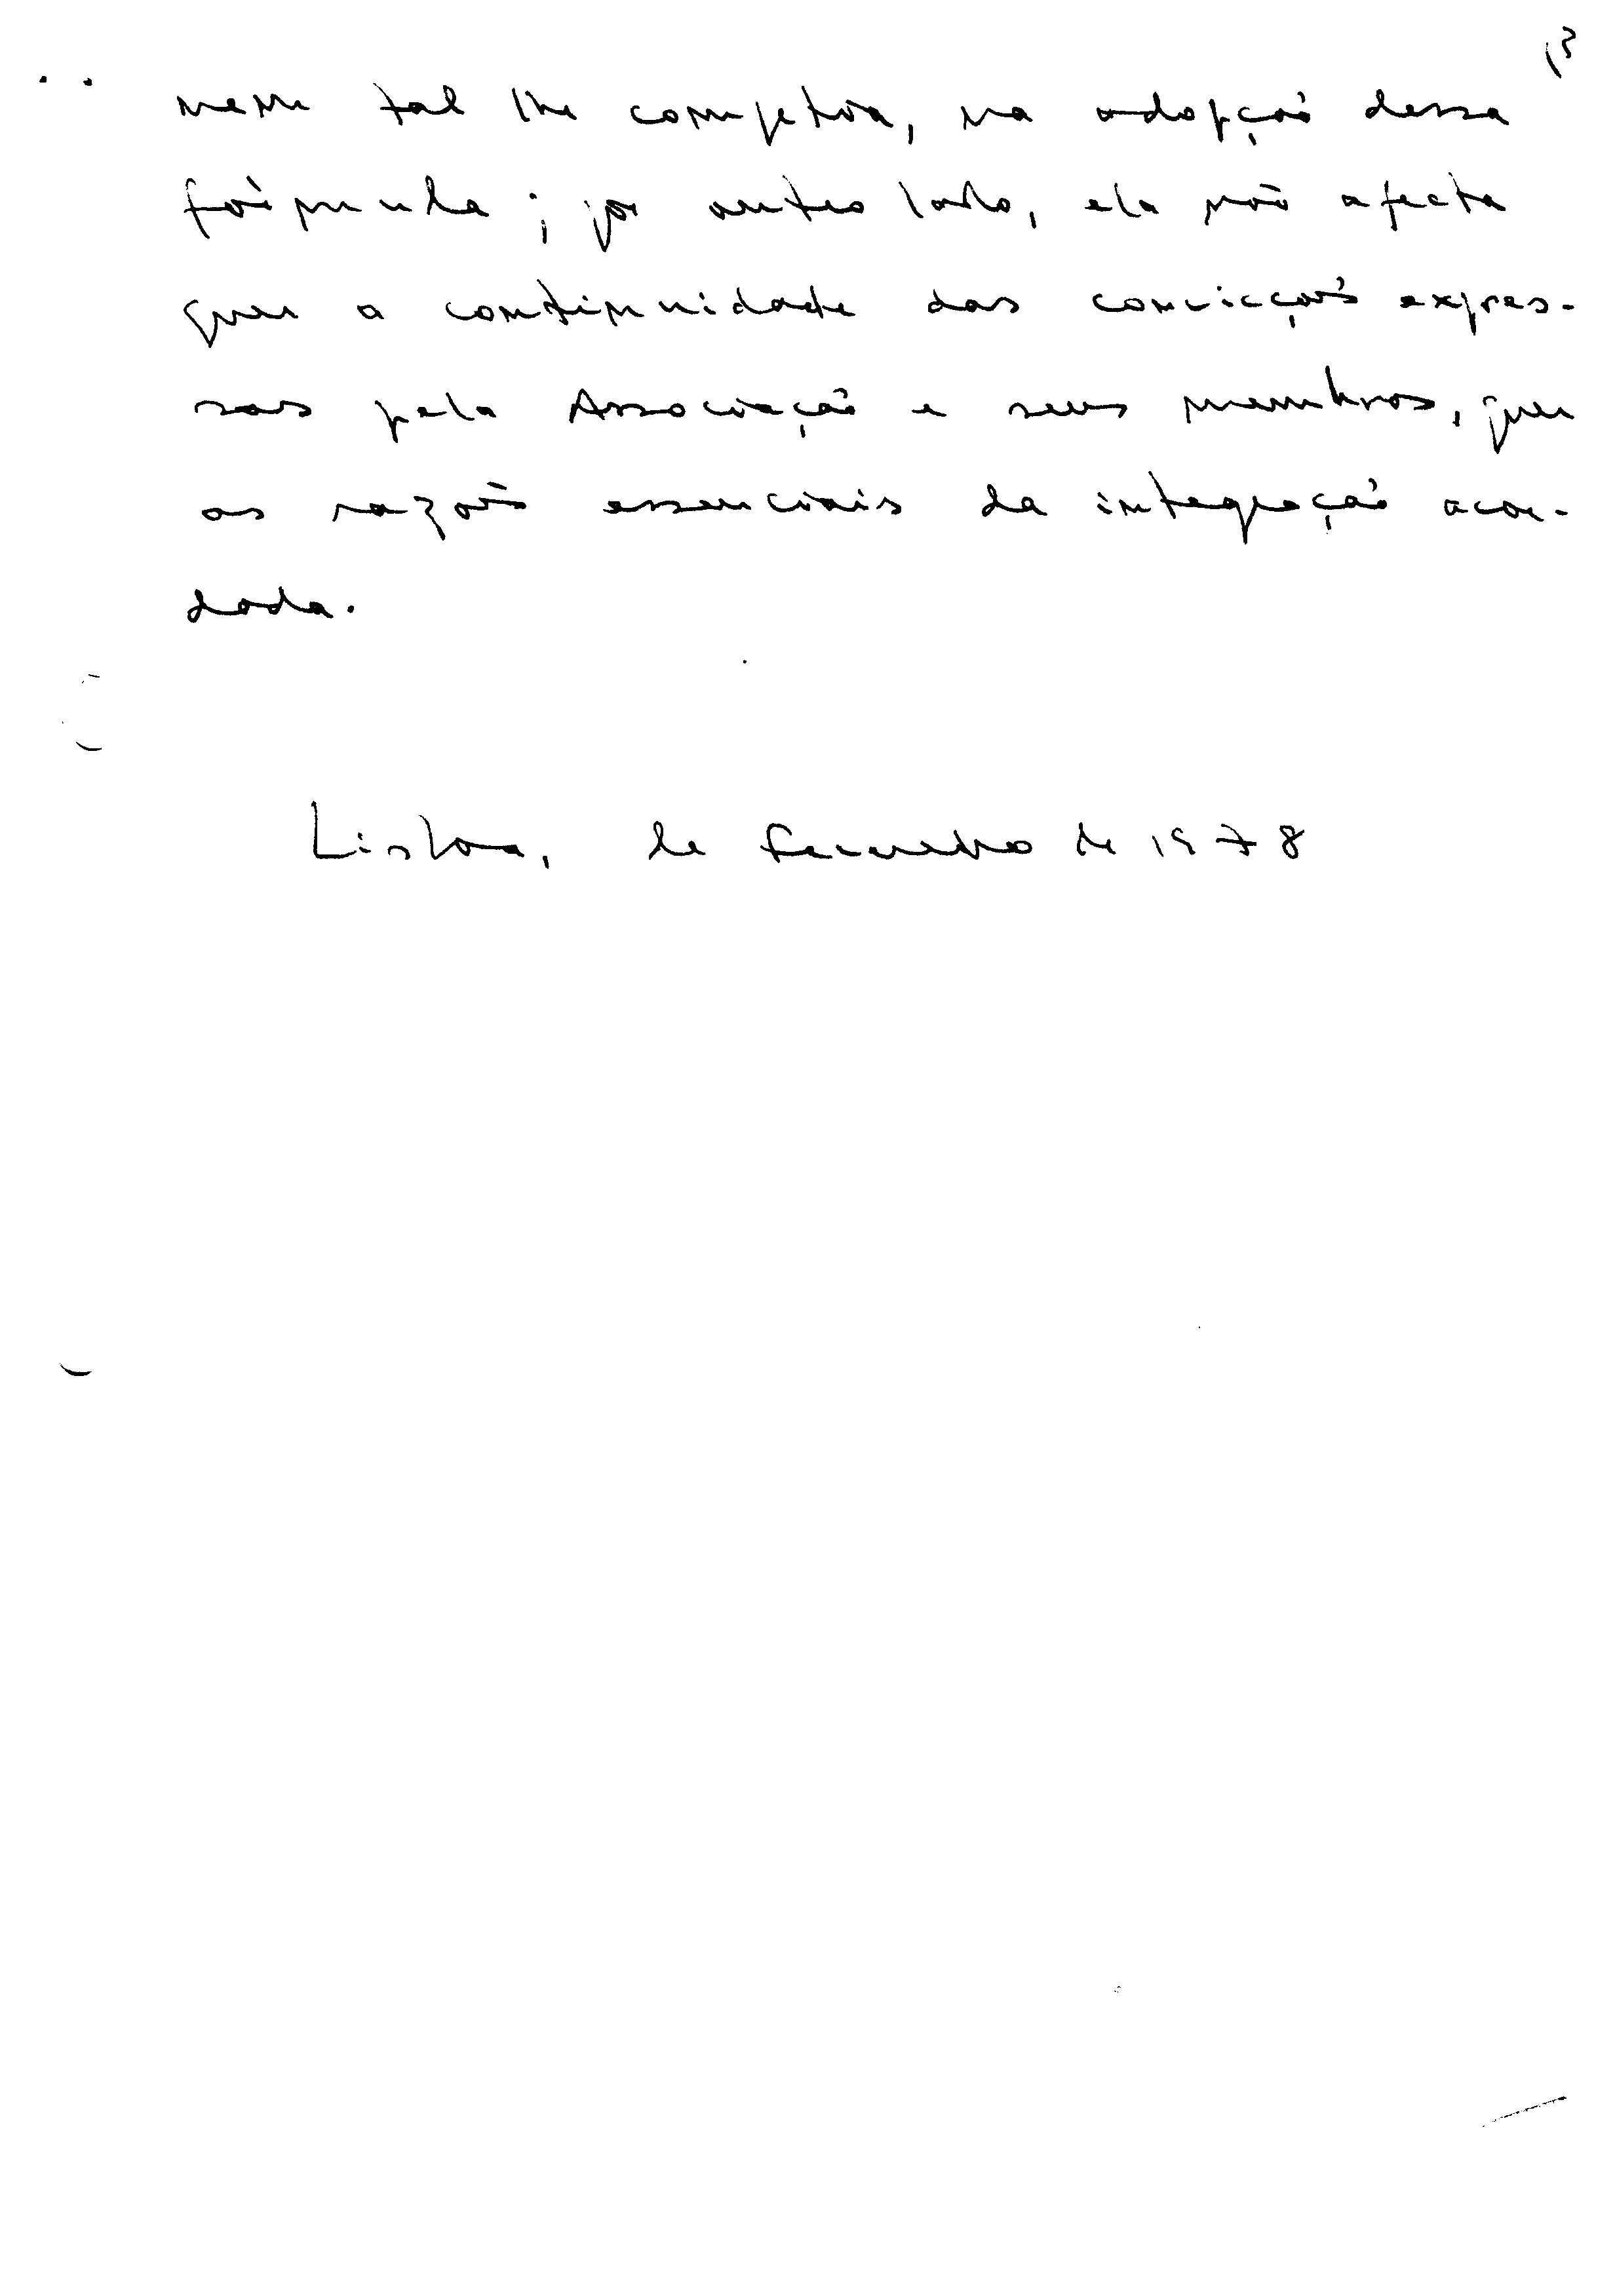 13
nem tal lhe competia, na adopção dessa
fórmula; por outro lado, ela não afecta
quer a continuidade das convicções expres-
sas pela Associação e seus membros, quer
as razões essenciais da integração acor-
dada.
Lisboa, de Fevereiro de 1978